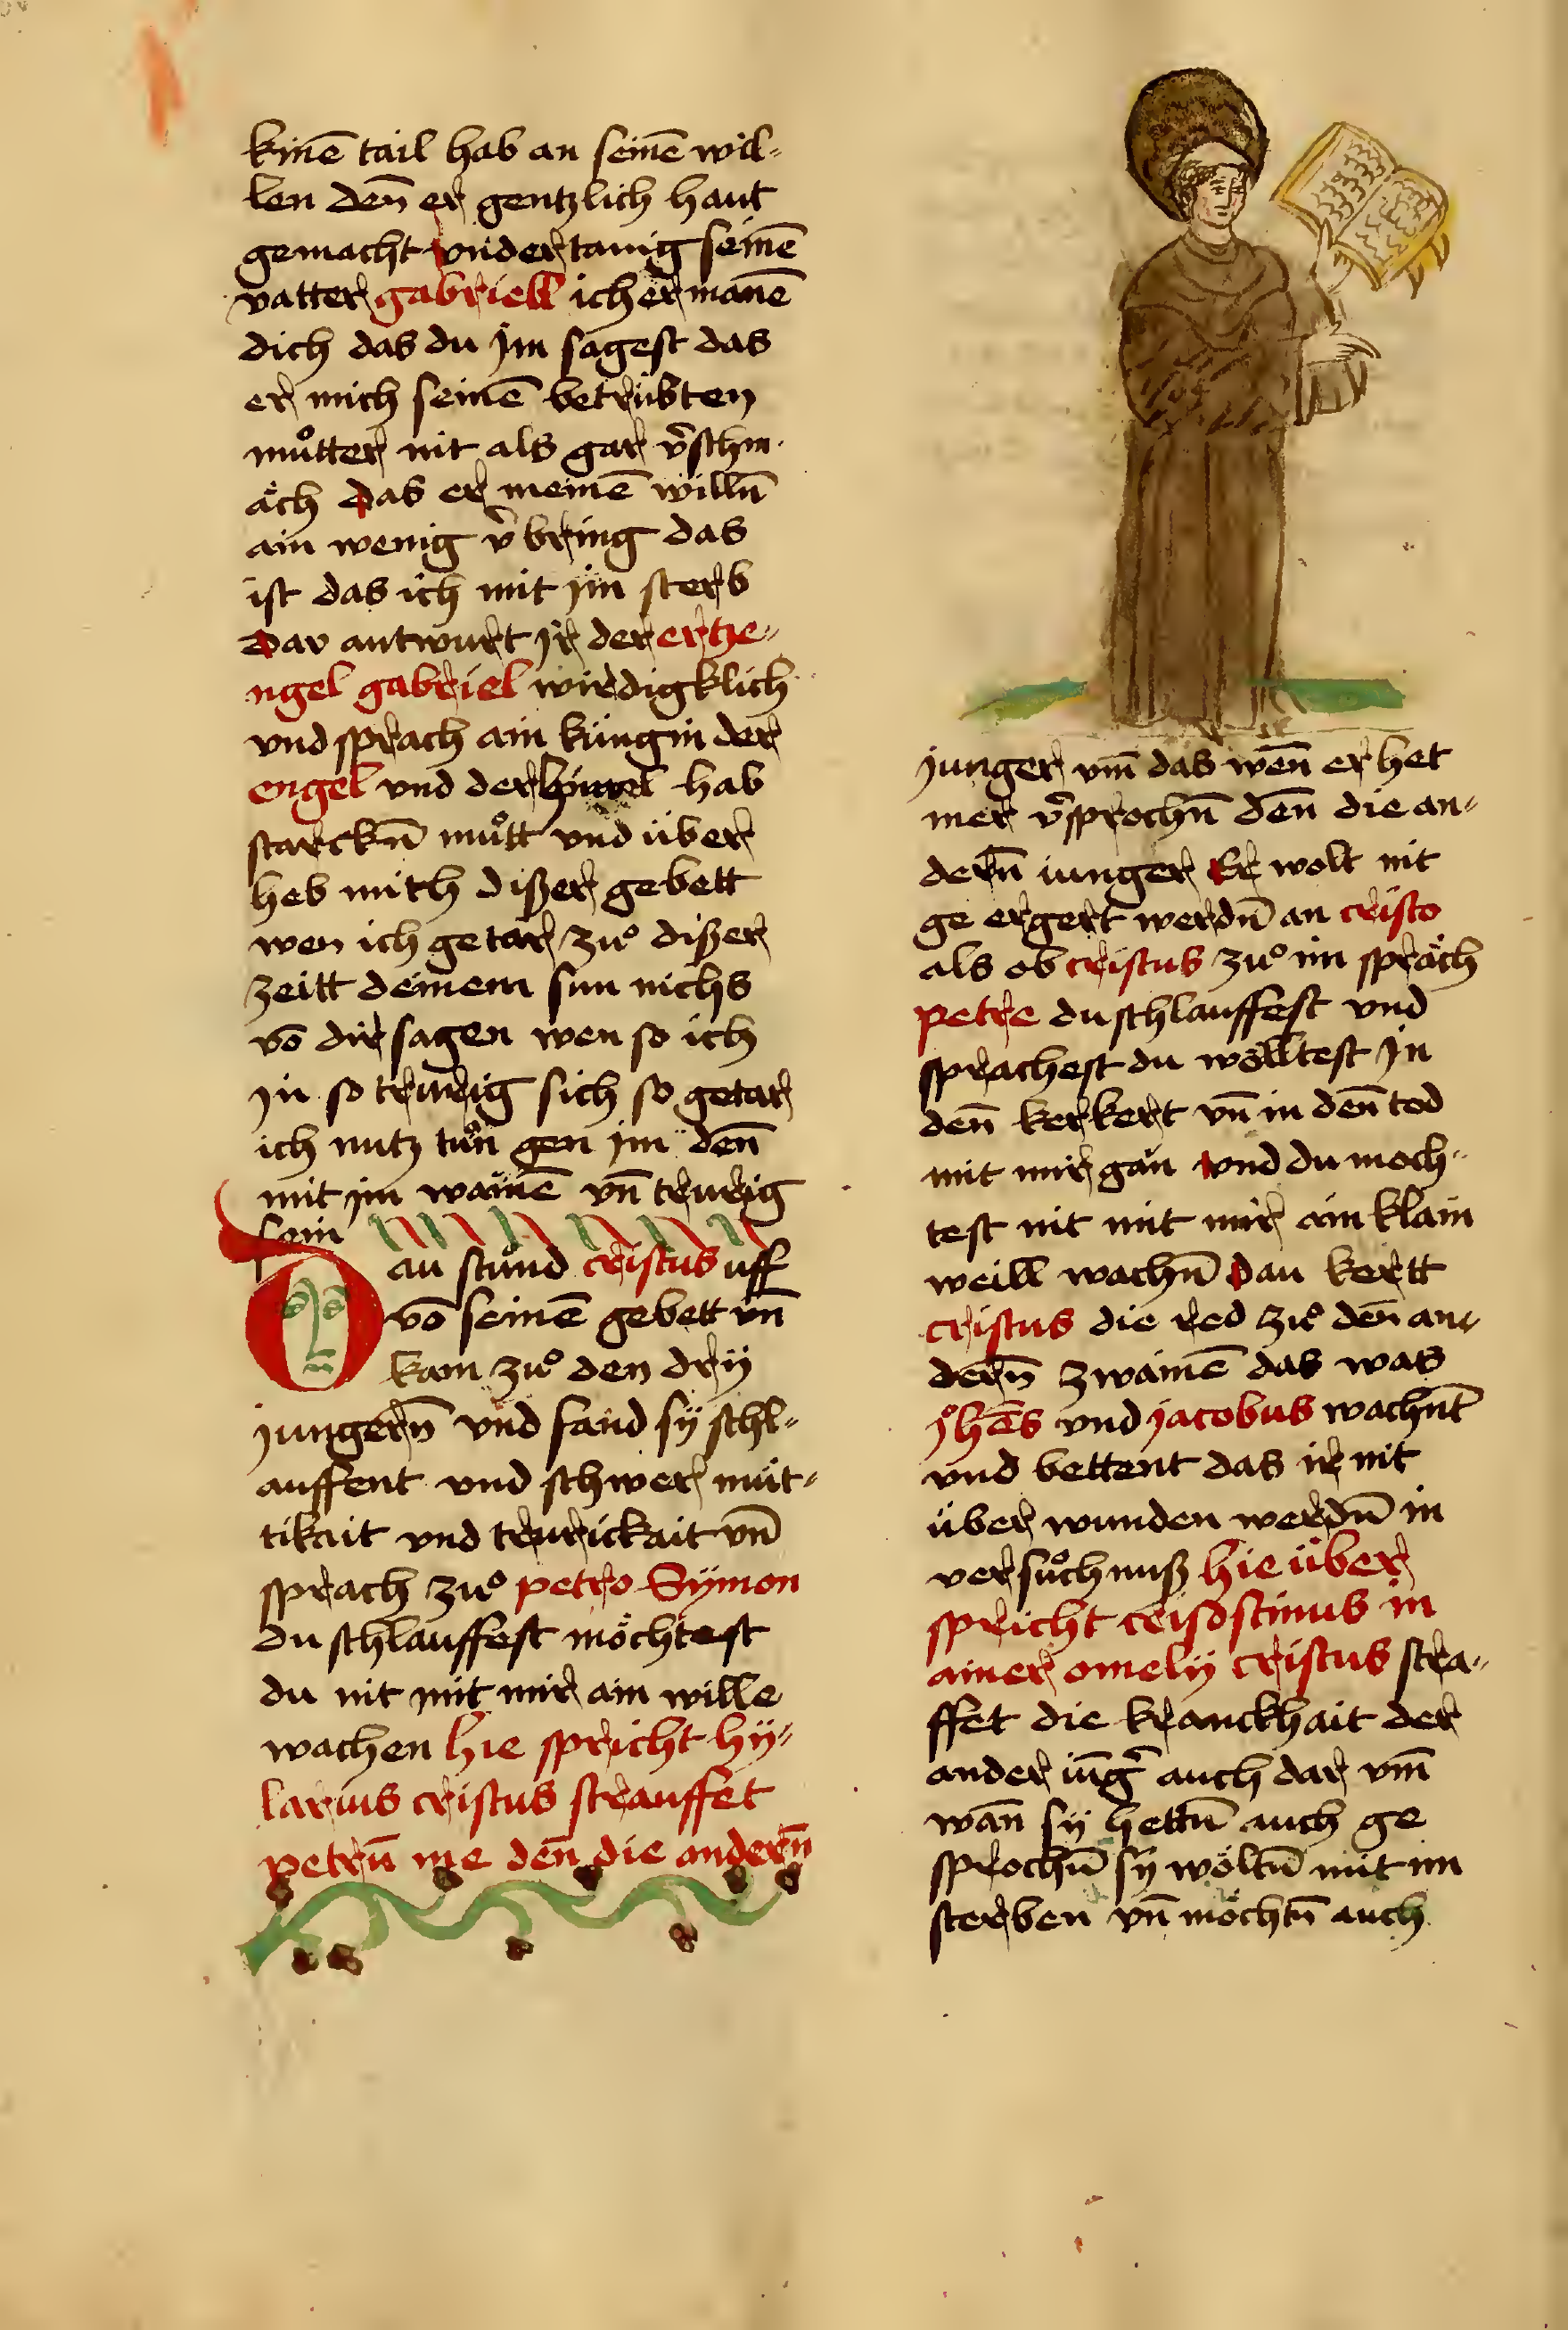 kinē tail hab an seinē wil-
len den̄ er gentzlich haut
gemacht vnder tanig seinē
vatter gabriell ich er manē
dich das du jm sagest das
er mich seinē betrübten
můtter nit als gar v̄schm
äch Das er meinē willn̄
ain wenig v̄bring das
ist das ich mit jm sterb
Dao antwurt jr der ertze-
ngel gabriel wirdigklich
vnd sprach ain küngin der
engel vnd der himel hab
starckn̄ můtt vnd über
heb mich dißer gebett
wen ich getar zuͦ dißer
zeitt deinem sun nichs
vō dir sagen wen so ich
jn so trurig sich so getar
ich nutz tůn gen jm den̄
mit jm wainē vn̄ trurig
sein
Dau stůnd cristus uff
vō seinē gebett vn̄
kam zuͦ den drÿ
jungern̄ vnd fand sÿ schl-
auffent vnd schwer müt-
tikait vnd trurickait vn̄
sprach zuͦ petro Sÿmon
du schlauffest möchtest
du nit mit mir ain wille
wachen hie spricht hÿ-
larius cristus strauffet
petrū me den̄ die andern̄
junger vm̄ das wen̄ er het
mer v̄sprochn̄ den̄ die an-
dern̄ iunger Er wolt nit
ge ergert werdn̄ an cristo
als ob cristus zuͦ im spräch
petre du schlauffest vnd
sprachest du wölltest jn
den̄ kerkert vn̄ in den̄ tod
mit mir gan vnd du moch-
test nit mit mir ain klain
weill wachn̄ Dau kertt
cristus die red zuͦ den̄ an-
dern̄ zwainē das was
johēs vnd jacobus wachn̄t
vnd bettent das ir nit
über wunden werdn̄ in
versůchnuß hie über
spricht crisostimus in
ainer omelÿ cristus stra-
ffet die kranckhait der
ander iūḡ auch dar vm̄
wan̄ sÿ hettn̄ auch ge
sprochn̄ sÿ wöltn̄ mit im
sterben vn̄ möchtn̄ auch